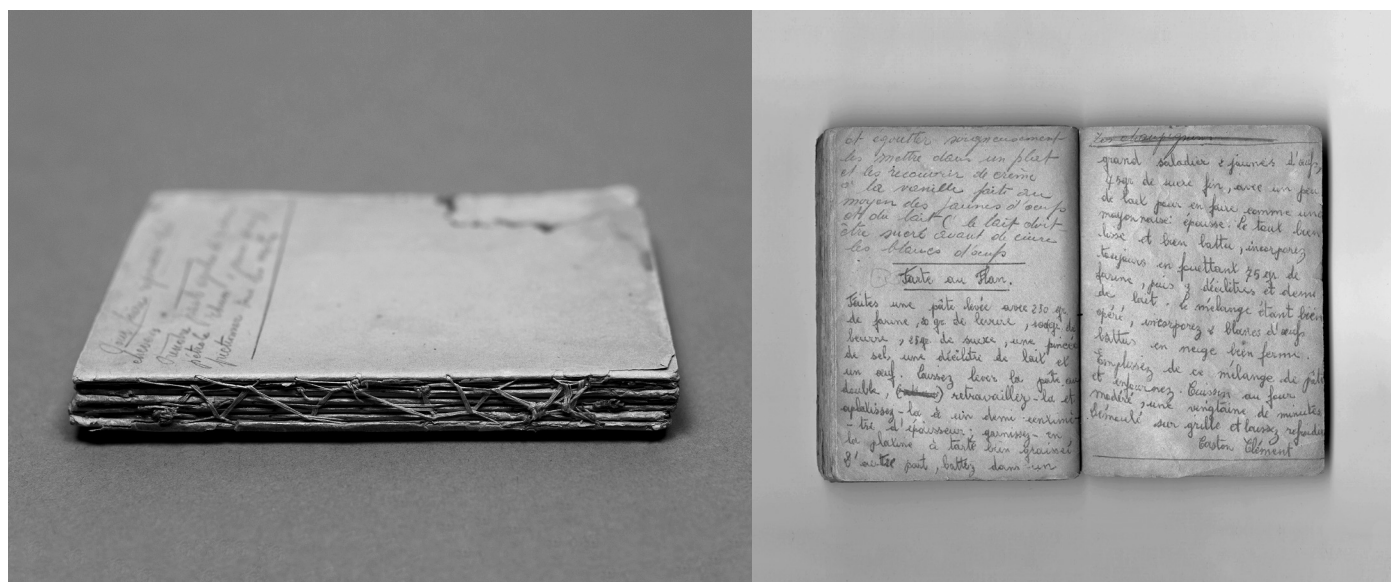 et egoutter soigneusement
les mettre dans un plat
et les recouvrir de creme
a la vanille faite au
moyen des jaunes d'oeufs
et du lait (le lait doit
être sucré avant de cuire
les blancs d'oeufs
Tarte au Flan.
Faites une pâte levée avec 250 gr
de farine, 10 gr de levure, de
beurre, 25gr. de sucre, une pincée
de sel, une décilitre de lait et
un oeuf. Laissez lever la pâte au
double, retravaillez-la et
aplatissez-la à un demi-centimè-
-tre d'épaisseur; garnissez-en
la platine à tarte bien graissée.
D'autre part, battez dans un
Les champignons
grand saladier 2 jaunes d'oeufs,
75gr de sucre fin, avec un peu
de lait pour en faire comme une
mayonnaise épaisse. le tout bien
lisse et bien battu, incorporez
toujours en fouettant 75 gr de
farine, puis 4 décilitres et demi
de lait. le mélange étant bien
opéré, incorporez 2 blancs d'oeufs
battus en neige bien ferme.
Emplissez de ce mélange la pâte
et enfournez Cuisson au four
modéré, une vingtaine de minutes
Démoulé sur grille et laissez refroidir
Gaston Clément